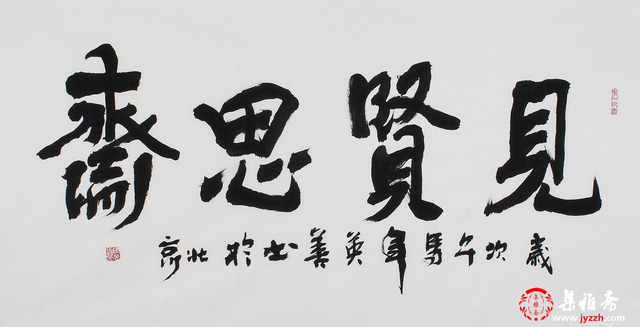 見賢思齊
歲次午馬年英善書於北京
集雅斋
www.jyzzh.com